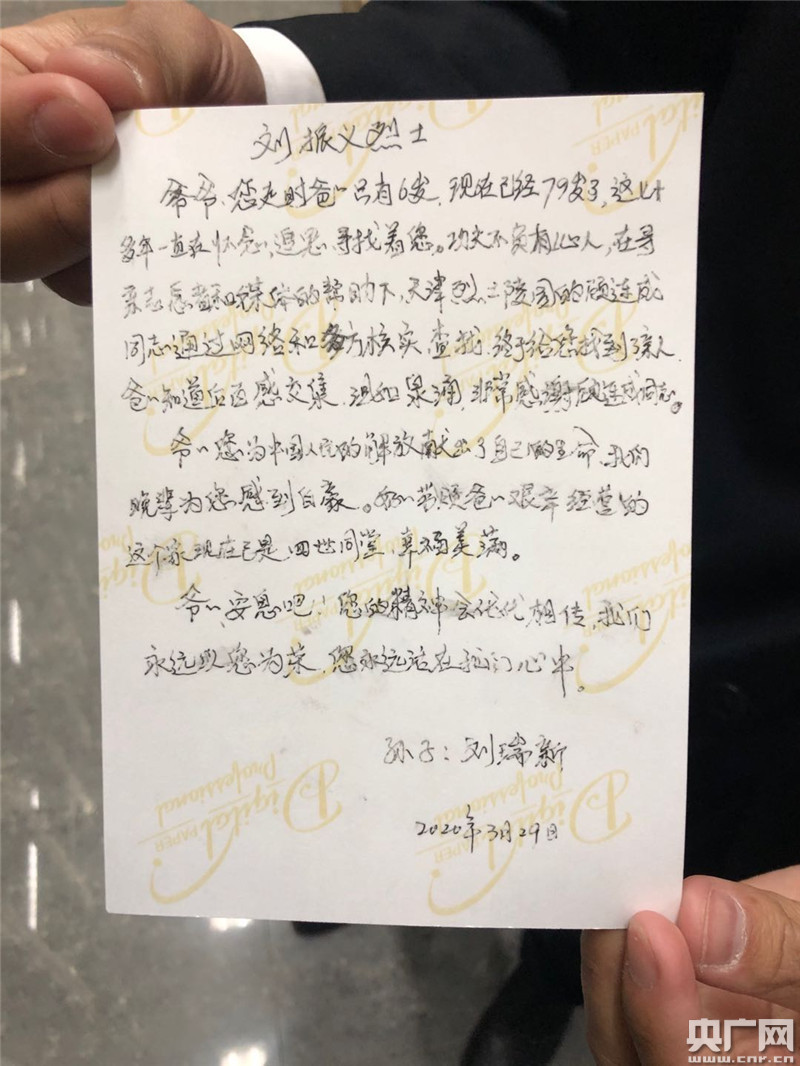 刘振义烈士
爷爷、您走时爸〃只有6岁，现在已经79岁了，这么
多年一直在怀念，追思，寻找着您。功夫不负有心人，在寻
亲志愿者和媒体的帮助下，天津烈士陵园的顾连成
同志通过网络和多方核实、查找，终于给您找到家人，
爸〃知道后百感交集，泪如泉涌，非常感谢顾连成同志。
爷〃您为中国人民的解放献出了自己的生命，我们
晚辈为您感到自豪。奶〃带领爸〃艰辛经营的
这个家现在已是四世同堂，幸福美满。
爷〃，安息吧！您的精神会代代相传，我们
永远以您为荣，您永远活在我们心中。
孙子：刘瑞新
2020年3月29日
Digital
PAPER
Professional
Digital
Professional
Digital
PAPER
Professional
Digital
PAPER
央广网
www.cnr.cn